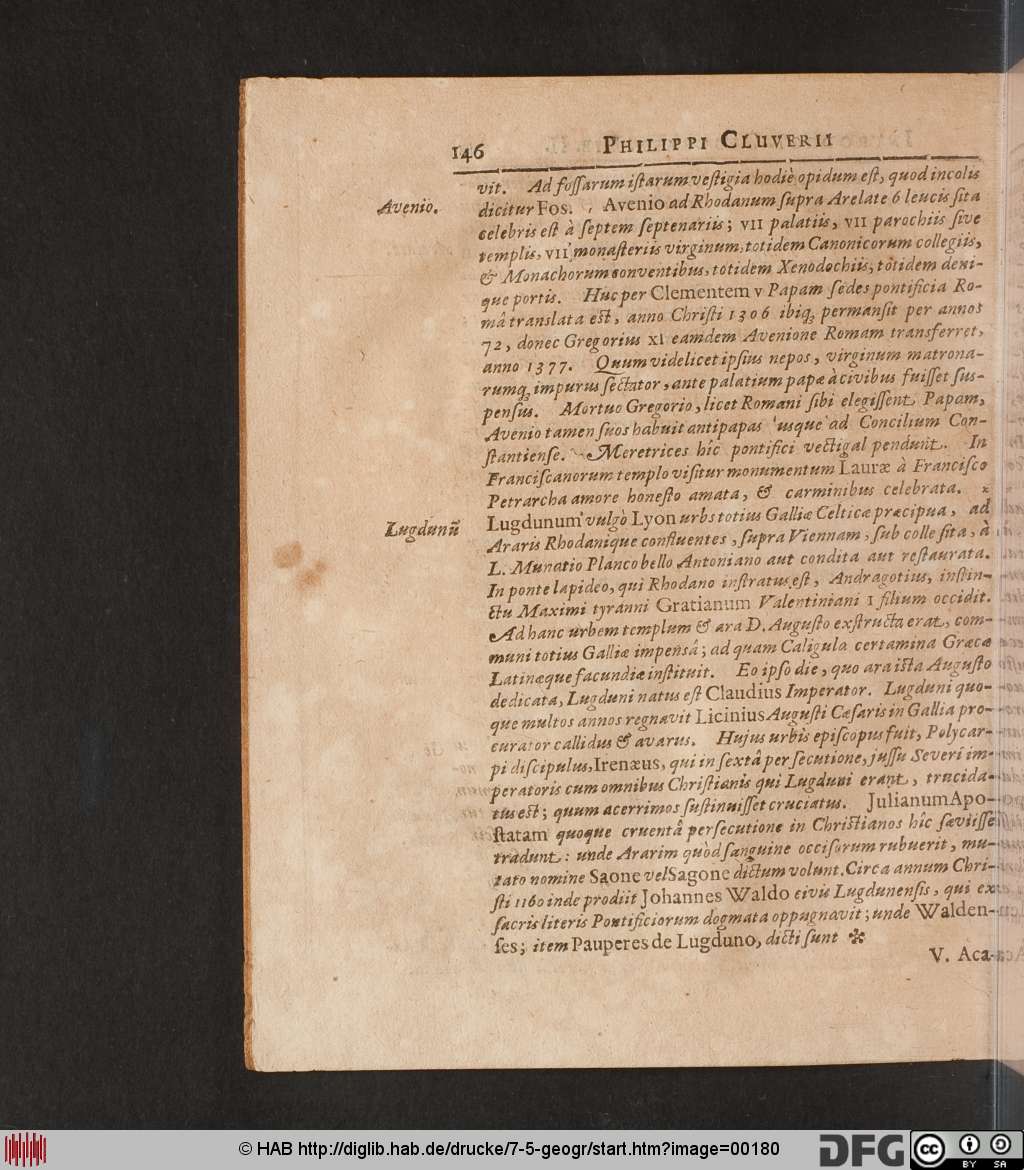 146 PHILIPPI CLUVERII
vit. Ad fossarum istarum vestigia hodiè opidum est, quod incolis
Avenio.
dicitur Fos. Avenio ad Rhodanum supra Arelate 6 leucis sita
celebris est à septem septenariis; VII palatiis, VII parochiis sive
templis, VII monasteriis virginum, totidem Canonicorum collegiis,
& Monachorum conventibus, totidem Xenodochiis, totidem deni-
que portis. Huc per Clementem V Papam sedes pontificia Ro-
mâ translata est, anno Christi 1306 ibiq; permansit per annos
72, donec Gregorius XI eamdem Avenione Romam transferret,
anno 1377. Quum videlicet ipsius nepos, virginum matrona-
rumq; impurus sectator, ante palatium papæ à civibus fuisset sus-
pensus. Mortuo Gregorio, licet Romani sibi elegissent Papam,
Avenio tamen suos habuit antipapas usque ad Concilium Con-
stantiense. Meretrices hîc pontifici vectigal pendunt. In
Franciscanorum templo visitur monumentum Lauræ à Francisco
Petrarcha amore honesto amata, & carminibus celebrata. *
Lugdunū
Lugdunum vulgò Lyon urbs totius Galliæ Celticæ præcipua, ad
Araris Rhodanique confluentes, supra Viennam, sub colle sita, à
L. Munatio Planco bello Antoniano aut condita aut restaurata.
In ponte lapideo, qui Rhodano instratus est, Andragotius, instin-
ctu Maximi tyranni Gratianum Valentiniani I filium occidit.
Ad hanc urbem templum & ara D. Augusto exstructa erat, com-
muni totius Galliæ impensâ; ad quam Caligula certamina Græcæ
Latinæque facundiæ instituit. Eo ipso die, quo ara ista Augusto
dedicata, Lugduni natus est Claudius Imperator. Lugduni quo-
que multos annos regnavit Licinius Augusti Cæsaris in Gallia pro-
curator callidus & avarus. Hujus urbis episcopus fuit, Polycar-
pi discipulus, Irenæus, qui in sextâ persecutione, jussu Severi im-
peratoris cum omnibus Christianis qui Lugduni erant, trucida-
tus est; quum acerrimos sustinuisset cruciatus. Julianum Apo-
statam quoque cruentâ persecutione in Christianos hîc sæviisse
tradunt: unde Ararim quòd sanguine occisorum rubuerit, mu-
tato nomine Saone vel Sagone dictum volunt. Circa annum Chri-
sti 1160 inde prodiit Johannes Waldo civis Lugdunensis, qui ex
sacris literis Pontificiorum dogmata oppugnavit; unde Walden-
ses; item Pauperes de Lugduno, dicti sunt ✻
V. Aca-
© HAB http://diglib.hab.de/drucke/7-5-geogr/start.htm?image=00180
DFG
cc
BY SA